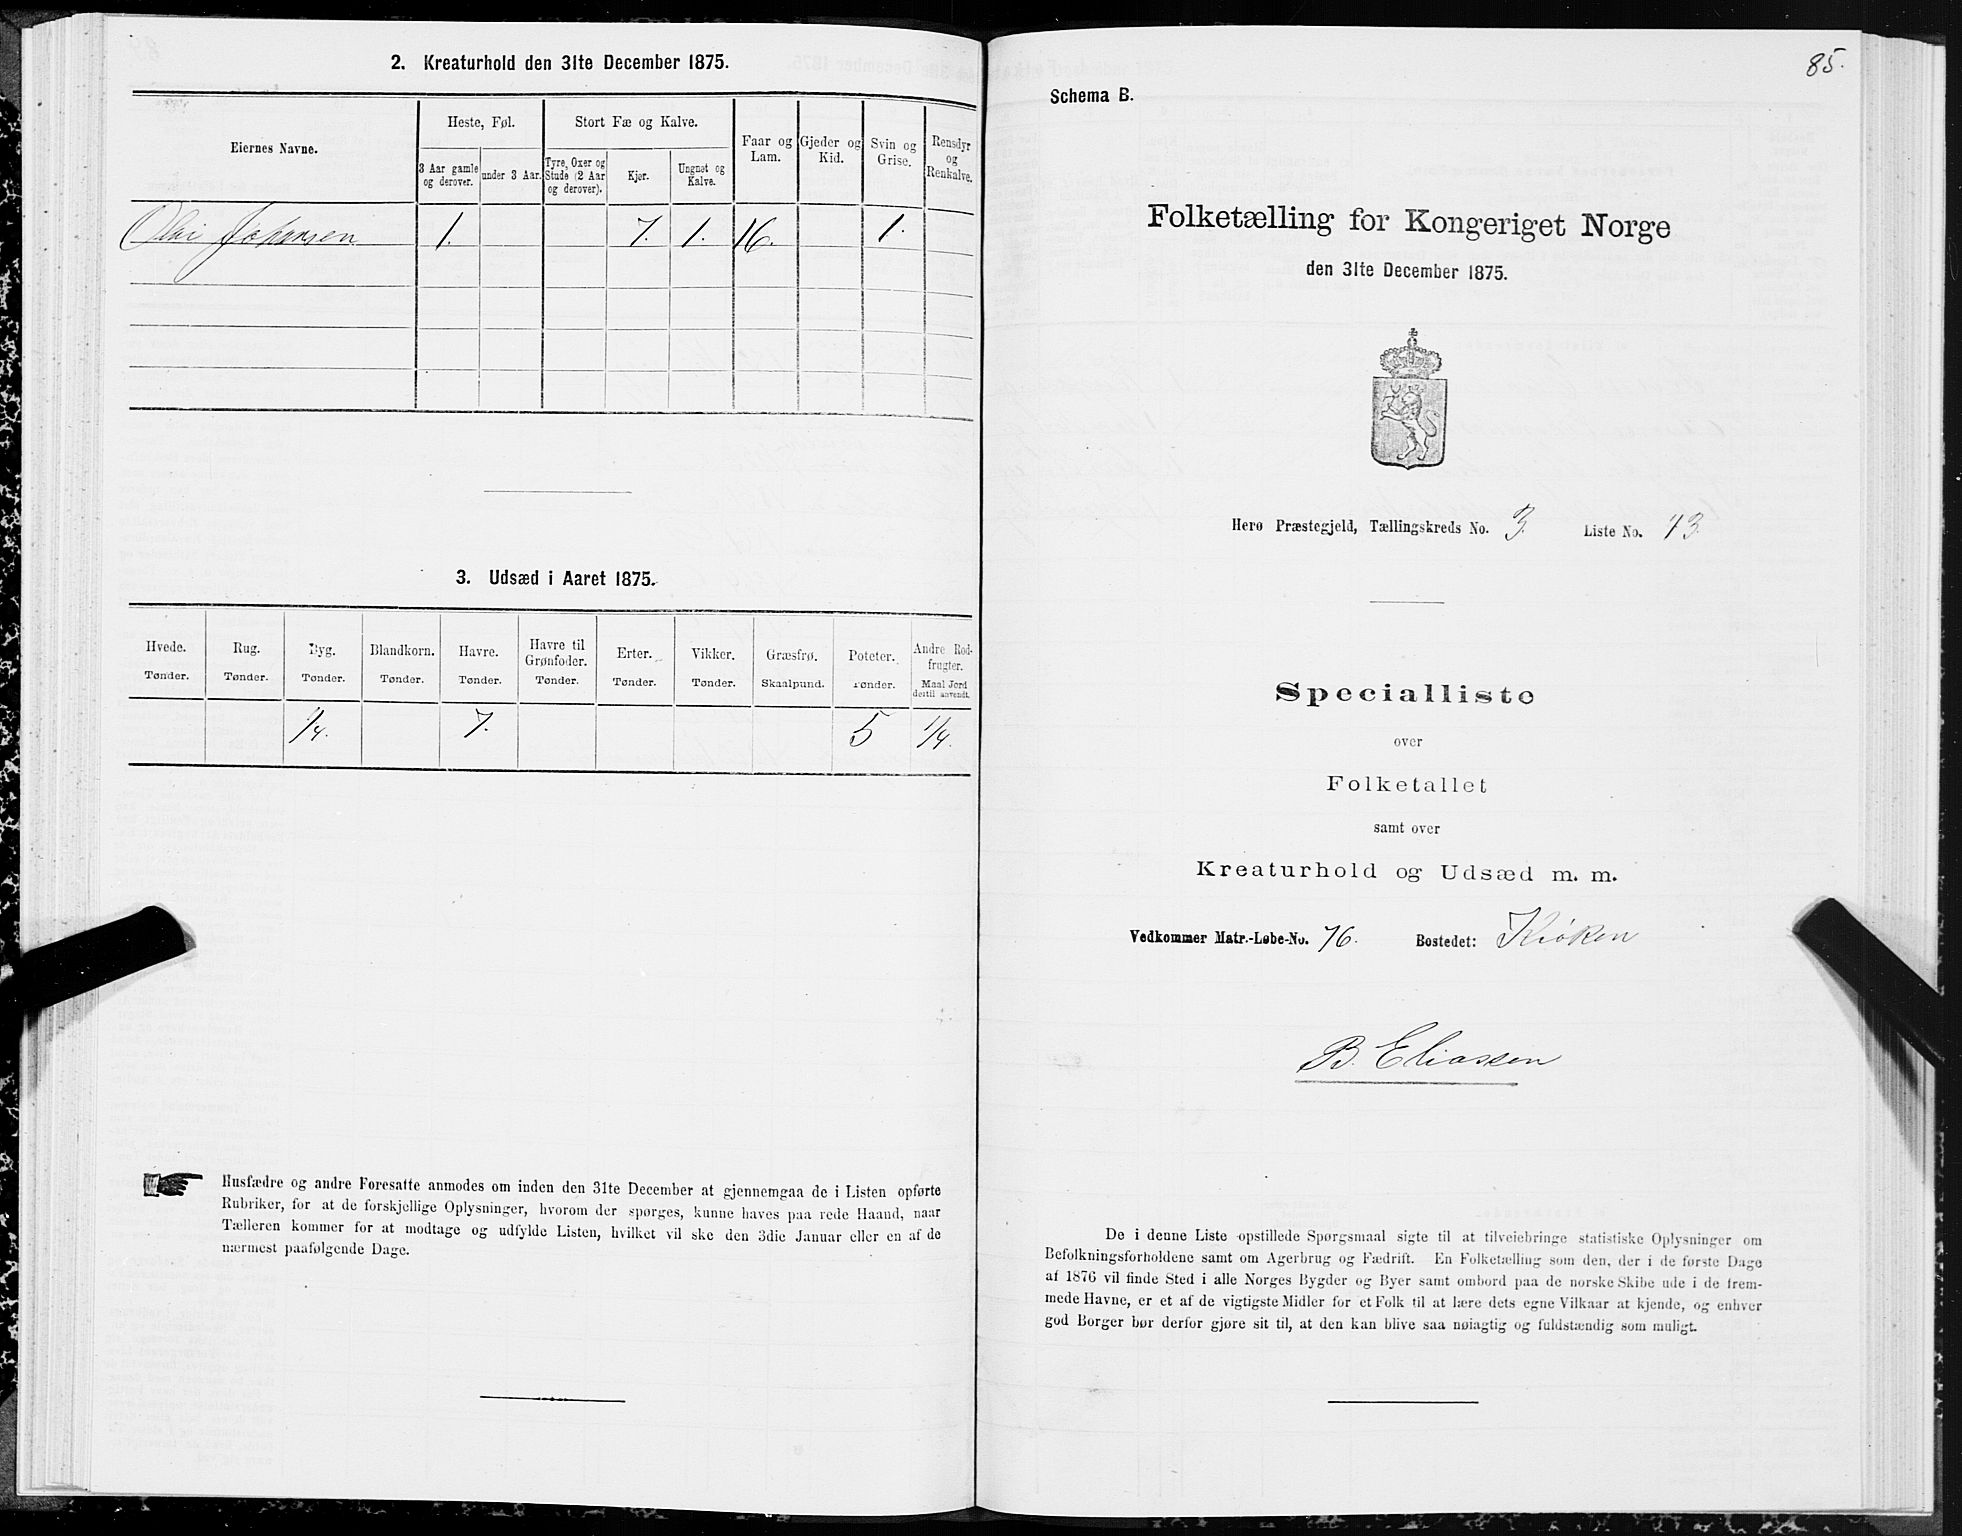 2. Kreaturhold den 31te December 1875.
Eiernes Navne.
Heste, Føl.
Stort Fæ og Kalve.
Faar og Lam.
Gjeder og Kid.
Svin og Grise.
Rensdyr og Renkalve.
3 Aar gamle og derover.
under 3 Aar.
Tyre, Oxer og Stude (2 Aar og derover).
Kjør.
Ungnøt og Kalve.
Olai Johansen 1. 7. 1. 16. 1.
3. Udsæd i Aaret 1875.
Hvede. Rug. Byg. Blandkorn. Havre. Havre til Grønfoder. Erter. Vikker. Græsfrø. Poteter. Andre Rodfrugter.
Tønder. Tønder. Tønder. Tønder. Tønder. Tønder. Tønder. Tønder. Skaalpund. Tønder. Maal Jord dertil anvendt.
1/4. 7. 5 1/4.
Husfædre og andre Foresatte anmodes om inden den 31te December at gjennemgaa de i Listen opførte
Rubriker, for at de forskjellige Oplysninger, hvorom der spørges, kunne haves paa rede Haand, naar
Tælleren kommer for at modtage og udfylde Listen, hvilket vil ske den 3die Januar eller en af de
nærmest paafølgende Dage.
85.
Schema B.
Folketælling for Kongeriget Norge
den 31te December 1875.
Herø Præstegjeld, Tællingskreds No. 3. Liste No. 73.
Specialliste
over
Folketallet
samt over
Kreaturhold og Udsæd m. m.
Vedkommer Matr.-Løbe-No. 76. Bostedet: Kiøken
B. Eliassen
De i denne Liste opstillede Spørgsmaal sigte til at tilveiebringe statistiske Oplysninger om
Befolkningsforholdene samt om Agerbrug og Fædrift. En Folketælling som den, der i de første Dage
af 1876 vil finde Sted i alle Norges Bygder og Byer samt ombord paa de norske Skibe ude i de frem-
mede Havne, er et af de vigtigste Midler for et Folk til at lære dets egne Vilkaar at kjende, og enhver
god Borger bør derfor gjøre sit til, at den kan blive saa nøiagtig og fuldstændig som muligt.